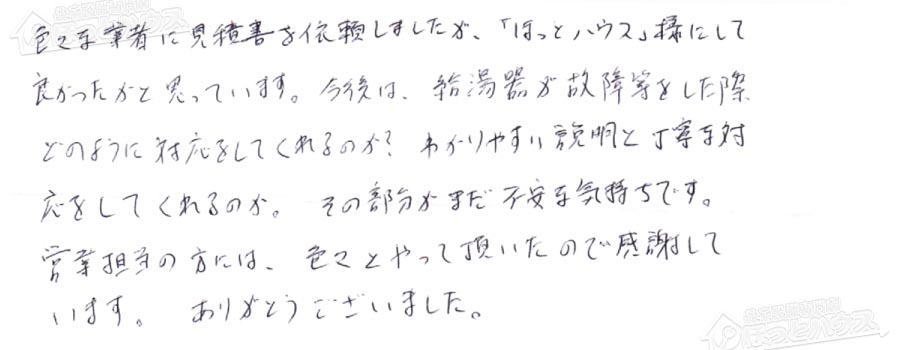 色々な業者に見積書を依頼しましたが、「ほっとハウス」様にして
良かったかと思っています。今後は、給湯器が故障等をした際
どのように対応をしてくれるのか？わかりやすい説明と丁寧な対
応をしてくれるのか。その部分がまだ不安な気持ちです。
営業担当の方には、色々とやって頂いたので感謝して
います。ありがとうございました。
ほっとハウス